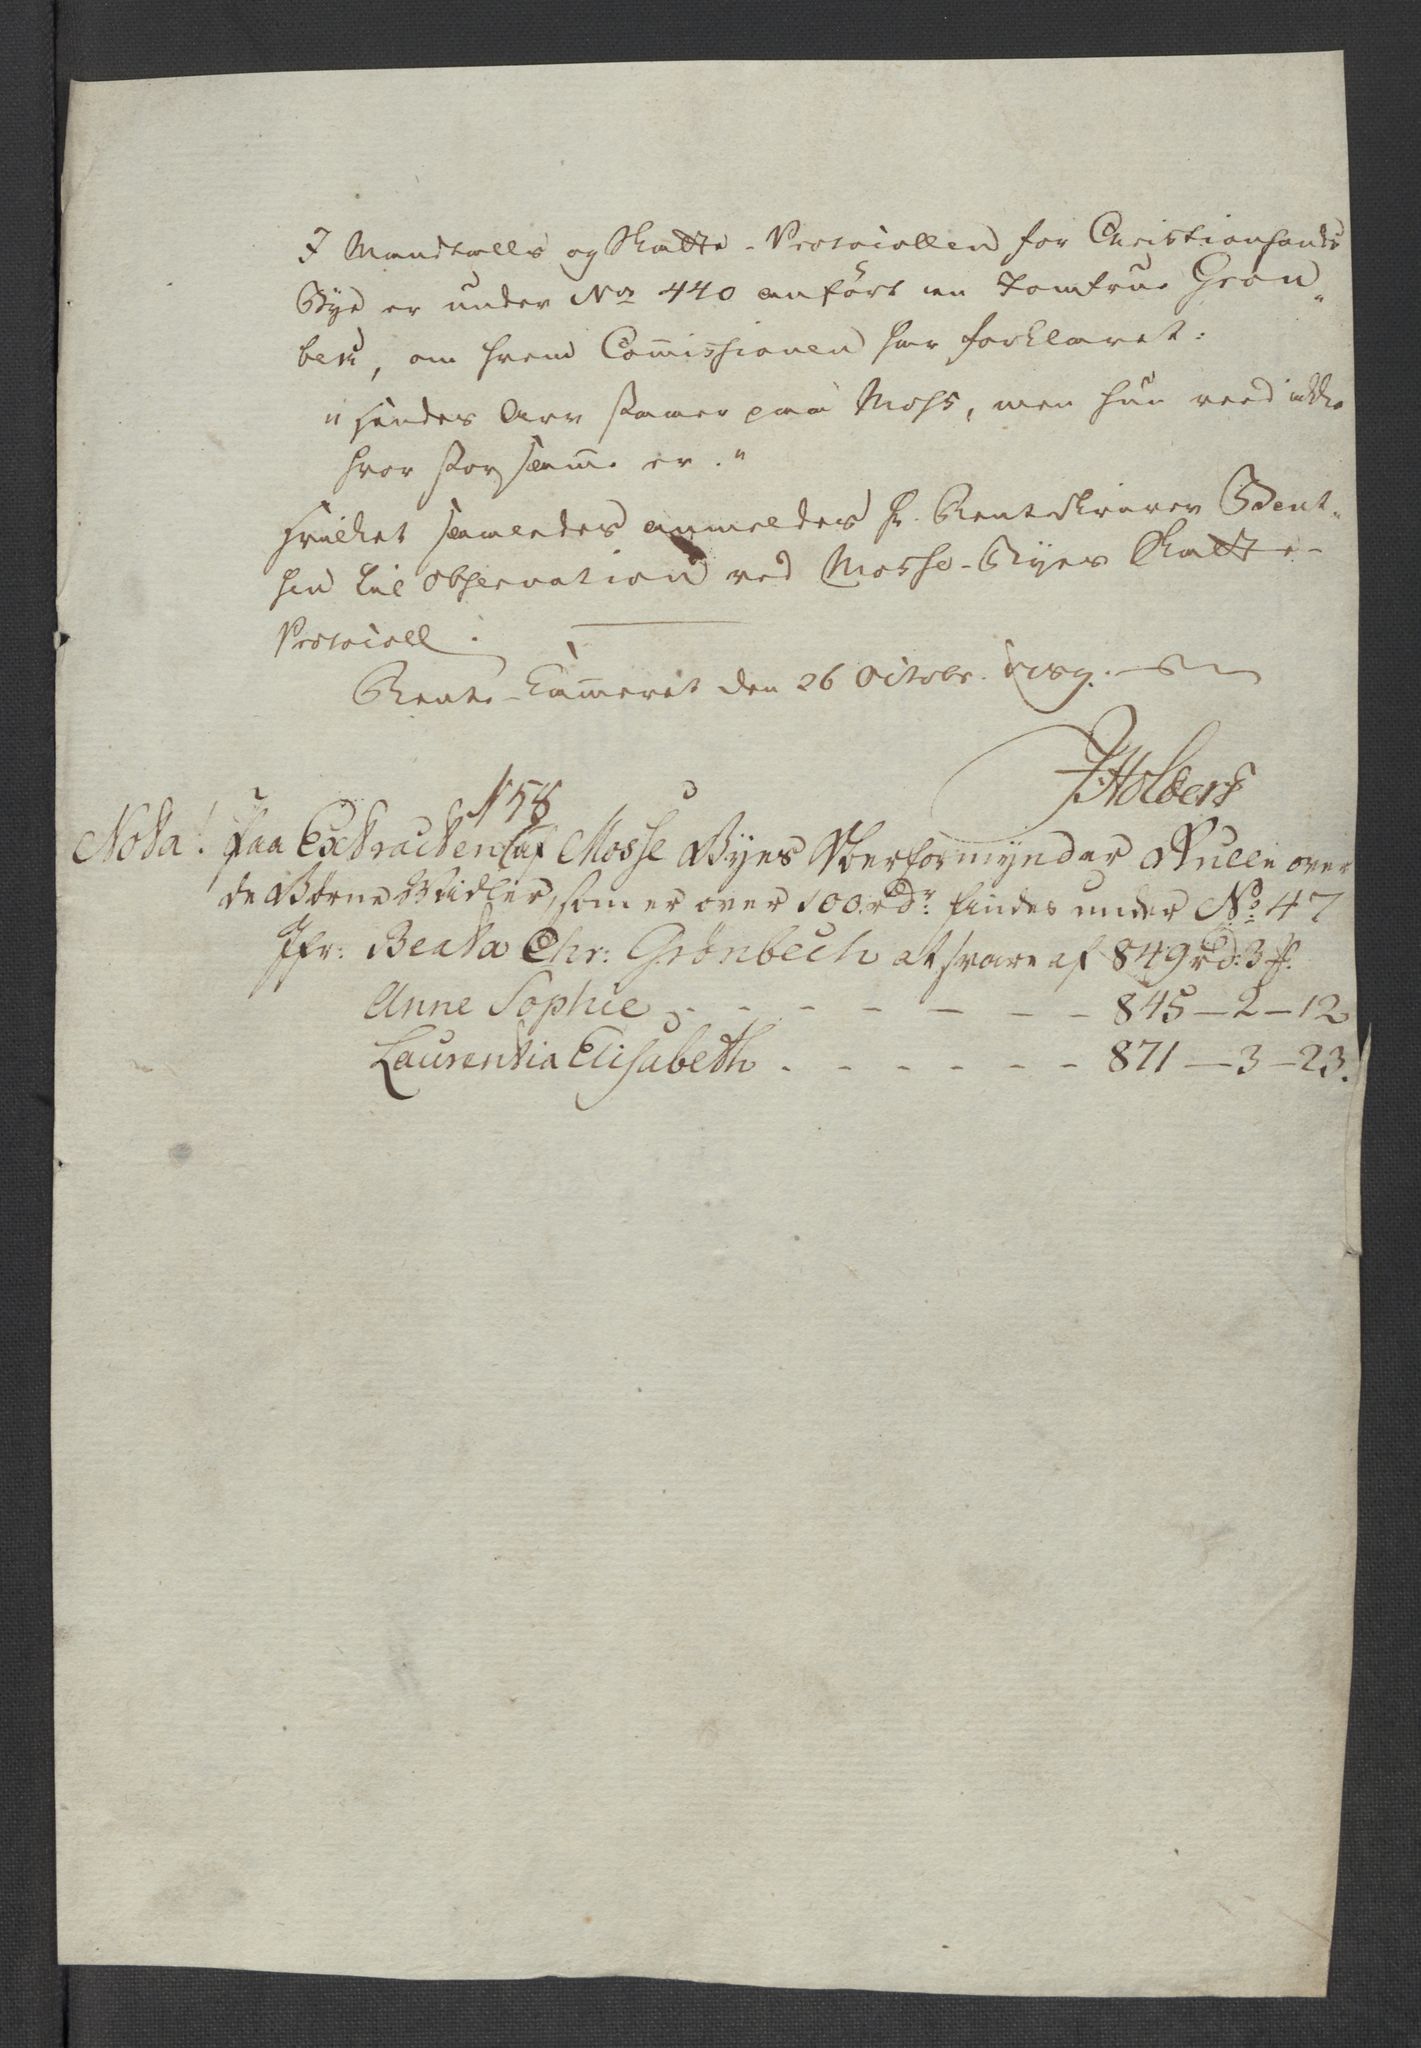 I Mandtalls og Skatte-Protocollen for Christiansands
Bye er under No 440 anført en Jomfrue Gron„
beck, om hvem Commissionen har forklaret:
"Hendes Arv staaer paa Moss, men hun veed ikke
hvor stor samme er."
Hvilket saaledes anmeldes Hr. Rentskriver Bent-
sen til Observation ved Mosse-Byes Skatte-
Protocoll.
Rente-Cammeret den 26 Octobr. 1789.
J. Holbers
158
Nota! Paa Extracten af Mosse Byes Overformynder Rulle over
de Børne Midler, som er over 100 rdr: findes under No: 47
Jfr: Beata Chr: Grönbech at svare af 849 rd: 3 s.
Anne Sophie - - - - - - - 845 - 2 - 12
Laurentia Elisabeth - - - - - - 871 - 3 - 23.